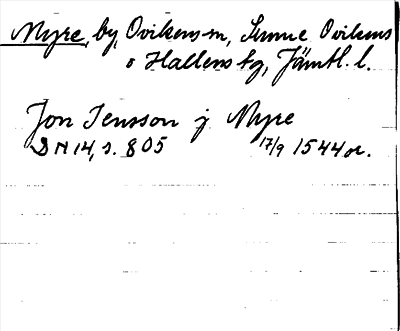 Myre, by, Ovikens sn, Sunne Ovikens
o Hallens tg, Jämtl. l.
Jon Jensson j Myre
DN 14, s. 805 17/9 1544 or.